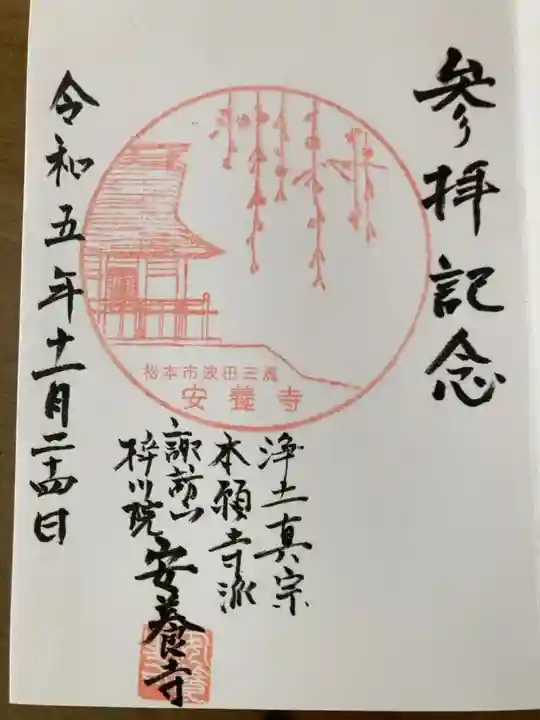 参り拝記念
松本市波田三溝
安養寺
浄土真宗
本願寺派
諏訪山
梓川院
安養寺
令和五年十一月二十四日